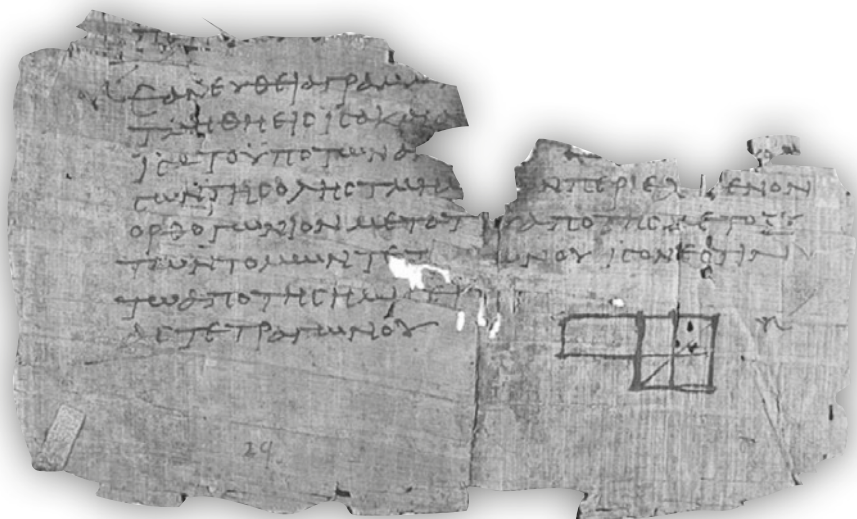 ΕΑΝ ΕΥΘΕΙΑ ΓΡΑΜΜ
ΤΜΗΘΗ ΕΙϹ ΙϹΑ ΚΑΙ Α
ΙϹΑ ΤΟ ΥΠΟ ΤΩΝ ΑΝ
ϹΩΝ ΤΗϹ ΟΛΗϹ ΤΜΗΜ ΩΝ ΠΕΡΙΕΧ ΜΕΝΟΝ
ΟΡΘΟΓΩΝΙΟΝ ΜΕΤΑ ΤΟΥ ΑΠΟ ΤΗϹ ΜΕΤΟΞΥ
ΤΩΝ ΤΟΜΩΝ ΤΕΤ ΩΝΟΥ ΙϹΟΝ ΕϹΤΙΝ
ΤΩ ΑΠΟ ΤΗϹ ΗΜΙϹΕΙ
ΑϹ ΤΕΤΡΑΓΩΝΟΥ
29